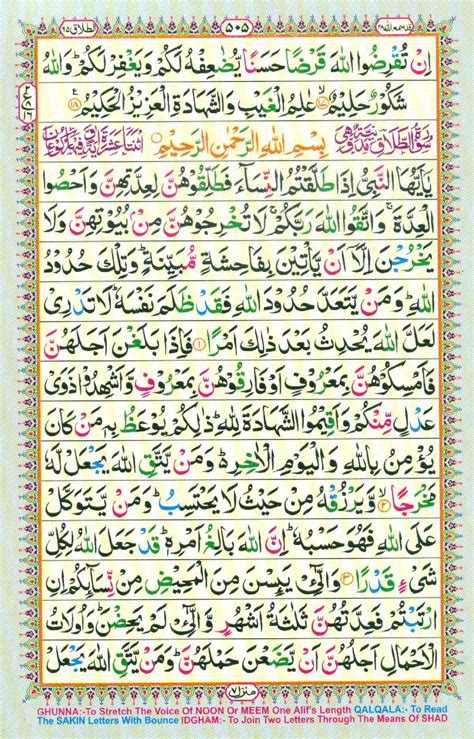 قد سمع الله ٢٨
٥٠٥
الطلاق ٦٥
اِنْ تُقْرِضُوا اللّٰهَ قَرْضًا حَسَنًا يُّضٰعِفْهُ لَكُمْ وَيَغْفِرْ لَكُمْ ؕ وَاللّٰهُ
شَكُوْرٌ حَلِيْمٌ ۙ﴿۱۷﴾ عٰلِمُ الْغَيْبِ وَالشَّهَادَةِ الْعَزِيْزُ الْحَكِيْمُ ﴿۱۸﴾
سُوْرَةُ الطَّلَاقِ مَدَنِيَّةٌ وَّهِيَ بِسْمِ اللّٰهِ الرَّحْمٰنِ الرَّحِيْمِ اثْنَتَا عَشْرَةَ اٰيَةً وَّفِيْهَا رُكُوْعَانِ
يٰۤاَيُّهَا النَّبِيُّ اِذَا طَلَّقْتُمُ النِّسَآءَ فَطَلِّقُوْهُنَّ لِعِدَّتِهِنَّ وَاَحْصُوا
الْعِدَّةَ ۚ وَاتَّقُوا اللّٰهَ رَبَّكُمْ ۚ لَا تُخْرِجُوْهُنَّ مِنْۢ بُيُوْتِهِنَّ وَلَا
يَخْرُجْنَ اِلَّاۤ اَنْ يَّاْتِيْنَ بِفَاحِشَةٍ مُّبَيِّنَةٍ ؕ وَتِلْكَ حُدُوْدُ
اللّٰهِ ؕ وَمَنْ يَّتَعَدَّ حُدُوْدَ اللّٰهِ فَقَدْ ظَلَمَ نَفْسَهٗ ؕ لَا تَدْرِيْ
لَعَلَّ اللّٰهَ يُحْدِثُ بَعْدَ ذٰلِكَ اَمْرًا ﴿۱﴾ فَاِذَا بَلَغْنَ اَجَلَهُنَّ
فَاَمْسِكُوْهُنَّ بِمَعْرُوْفٍ اَوْ فَارِقُوْهُنَّ بِمَعْرُوْفٍ وَّاَشْهِدُوْا ذَوَيْ
عَدْلٍ مِّنْكُمْ وَاَقِيْمُوا الشَّهَادَةَ لِلّٰهِ ؕ ذٰلِكُمْ يُوْعَظُ بِهٖ مَنْ كَانَ
يُؤْمِنُ بِاللّٰهِ وَالْيَوْمِ الْاٰخِرِ ؕ وَمَنْ يَّتَّقِ اللّٰهَ يَجْعَلْ لَّهٗ
مَخْرَجًا ۙ﴿۲﴾ وَّيَرْزُقْهُ مِنْ حَيْثُ لَا يَحْتَسِبُ ؕ وَمَنْ يَّتَوَكَّلْ
عَلَى اللّٰهِ فَهُوَ حَسْبُهٗ ؕ اِنَّ اللّٰهَ بَالِغُ اَمْرِهٖ ؕ قَدْ جَعَلَ اللّٰهُ لِكُلِّ
شَيْءٍ قَدْرًا ﴿۳﴾ وَالّٰٓـِٔيْ يَئِسْنَ مِنَ الْمَحِيْضِ مِنْ نِّسَآئِكُمْ اِنِ
ارْتَبْتُمْ فَعِدَّتُهُنَّ ثَلٰثَةُ اَشْهُرٍ ۙ وَّالّٰٓـِٔيْ لَمْ يَحِضْنَ ؕ وَاُولَاتُ
الْاَحْمَالِ اَجَلُهُنَّ اَنْ يَّضَعْنَ حَمْلَهُنَّ ؕ وَمَنْ يَّتَّقِ اللّٰهَ يَجْعَلْ
منزل ٧
GHUNNA:-To Stretch The Voice Of NOON Or MEEM One Alif's Length QALQALA:- To Read
The SAKIN Letters With Bounce IDGHAM:- To Join Two Letters Through The Means Of SHAD